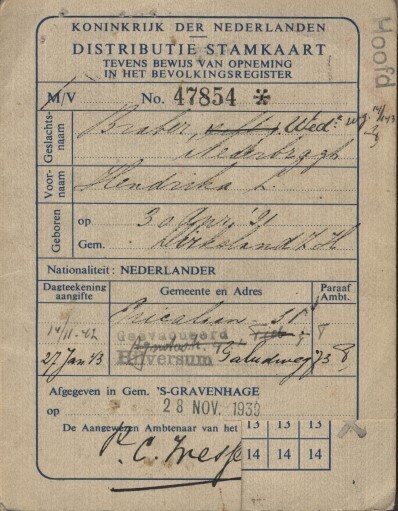 KONINKRIJK DER NEDERLANDEN
DISTRIBUTIE STAMKAART
TEVENS BEWIJS VAN OPNEMING
IN HET BEVOLKINGSREGISTER
Hoofd
M/V No. 47854 *
Geslachtsnaam Braber, Wed.
Voornaam Hendrika L.
Geboren op 30 Apr. '91
Gem. Dirksland Z.H
Nationaliteit: NEDERLANDER
Dagteekening aangifte Gemeente en Adres Paraaf Ambt.
14/11-42
Geevacueerd
27 Jan 43 Hilversum 73
Afgegeven in Gem. 'S-GRAVENHAGE
op 28 NOV. 1939
De Aangewezen Ambtenaar van het
13 13 13
14 14 14